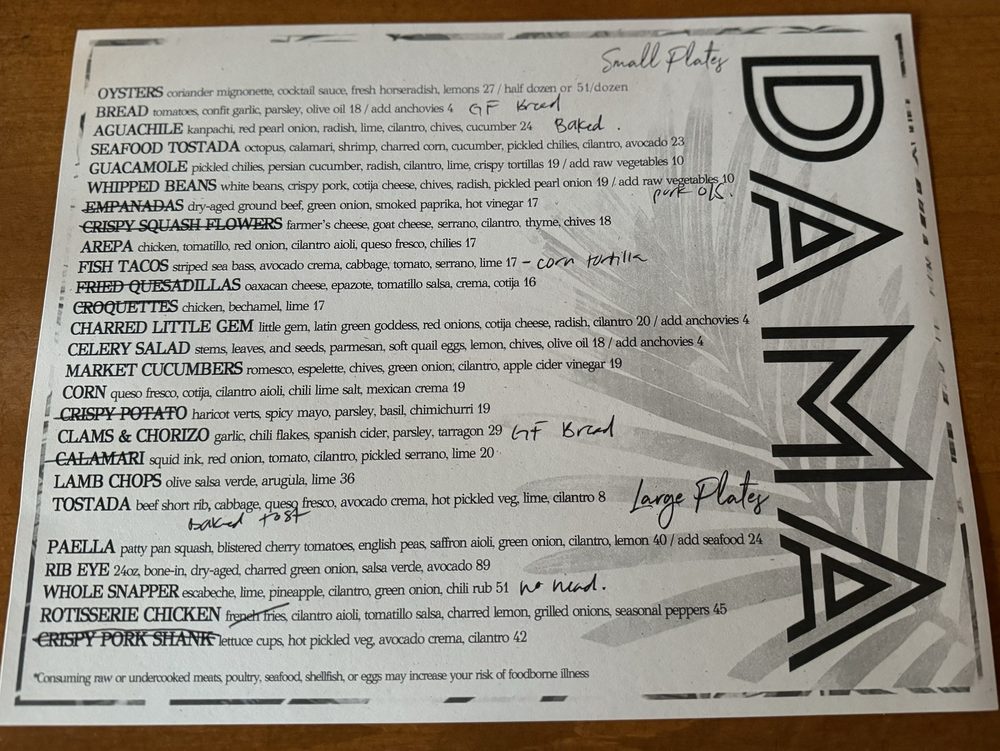 Small Plates
DAMA
OYSTERS coriander mignonette, cocktail sauce, fresh horseradish, lemons 27 / half dozen or 51/dozen
BREAD tomatoes, confit garlic, parsley, olive oil 18 / add anchovies 4 GF Bread
AGUACHILE kanpachi, red pearl onion, radish, lime, cilantro, chives, cucumber 24 Baked.
SEAFOOD TOSTADA octopus, calamari, shrimp, charred corn, cucumber, pickled chilies, cilantro, avocado 23
GUACAMOLE pickled chilies, persian cucumber, radish, cilantro, lime, crispy tortillas 19 / add raw vegetables 10
WHIPPED BEANS white beans, crispy pork, cotija cheese, chives, radish, pickled pearl onion 19 / add raw vegetables 10
pork o/s.
EMPANADAS dry-aged ground beef, green onion, smoked paprika, hot vinegar 17
CRISPY SQUASH FLOWERS farmer's cheese, goat cheese, serrano, cilantro, thyme, chives 18
AREPA chicken, tomatillo, red onion, cilantro aioli, queso fresco, chilies 17
FISH TACOS striped sea bass, avocado crema, cabbage, tomato, serrano, lime 17 - corn tortilla
FRIED QUESADILLAS oaxacan cheese, epazote, tomatillo salsa, crema, cotija 16
CROQUETTES chicken, bechamel, lime 17
CHARRED LITTLE GEM little gem, latin green goddess, red onions, cotija cheese, radish, cilantro 20 / add anchovies 4
CELERY SALAD stems, leaves, and seeds, parmesan, soft quail eggs, lemon, chives, olive oil 18 / add anchovies 4
MARKET CUCUMBERS romesco, espelette, chives, green onion, cilantro, apple cider vinegar 19
CORN queso fresco, cotija, cilantro aioli, chili lime salt, mexican crema 19
CRISPY POTATO haricot verts, spicy mayo, parsley, basil, chimichurri 19
CLAMS & CHORIZO garlic, chili flakes, spanish cider, parsley, tarragon 29 GF Bread
CALAMARI squid ink, red onion, tomato, cilantro, pickled serrano, lime 20
LAMB CHOPS olive salsa verde, arugula, lime 36
TOSTADA beef short rib, cabbage, queso fresco, avocado crema, hot pickled veg, lime, cilantro 8
baked tost
Large Plates
PAELLA patty pan squash, blistered cherry tomatoes, english peas, saffron aioli, green onion, cilantro, lemon 40 / add seafood 24
RIB EYE 24oz, bone-in, dry-aged, charred green onion, salsa verde, avocado 89
WHOLE SNAPPER escabeche, lime, pineapple, cilantro, green onion, chili rub 51 no head.
ROTISSERIE CHICKEN french fries, cilantro aioli, tomatillo salsa, charred lemon, grilled onions, seasonal peppers 45
CRISPY PORK SHANK lettuce cups, hot pickled veg, avocado crema, cilantro 42
*Consuming raw or undercooked meats, poultry, seafood, shellfish, or eggs may increase your risk of foodborne illness